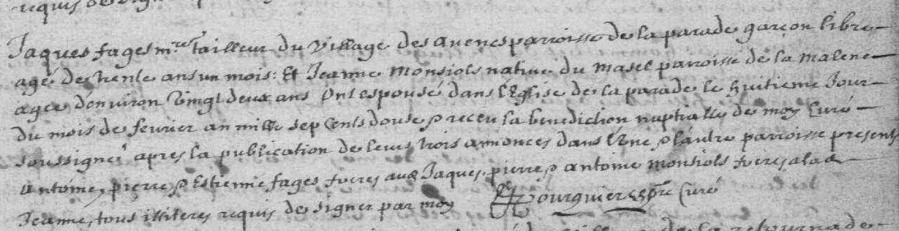 requis de signer
Jaques fages m.re tailleur du village des avenes parroisse de la parade garcon libre
agé de trente ans un mois: Et Jeanne Monsiols native du masel parroisse de la malene
agée d'environ vingt deux ans ont espousé dans l'Eglise de la parade le huitieme Jour
du mois de fevrier an mille sept cents douse & receu la benediction nuptialle de moy Curé
soussigné apres la publication de leurs trois annonces dans l'une & l'autre parroisse presents
antoine, pierre & Estienne fages freres aud Jaques, pierre & antoine monsiols freres a lad
Jeanne, tous illiteres requis de signer par moy Pourquier ptre Curé
de la